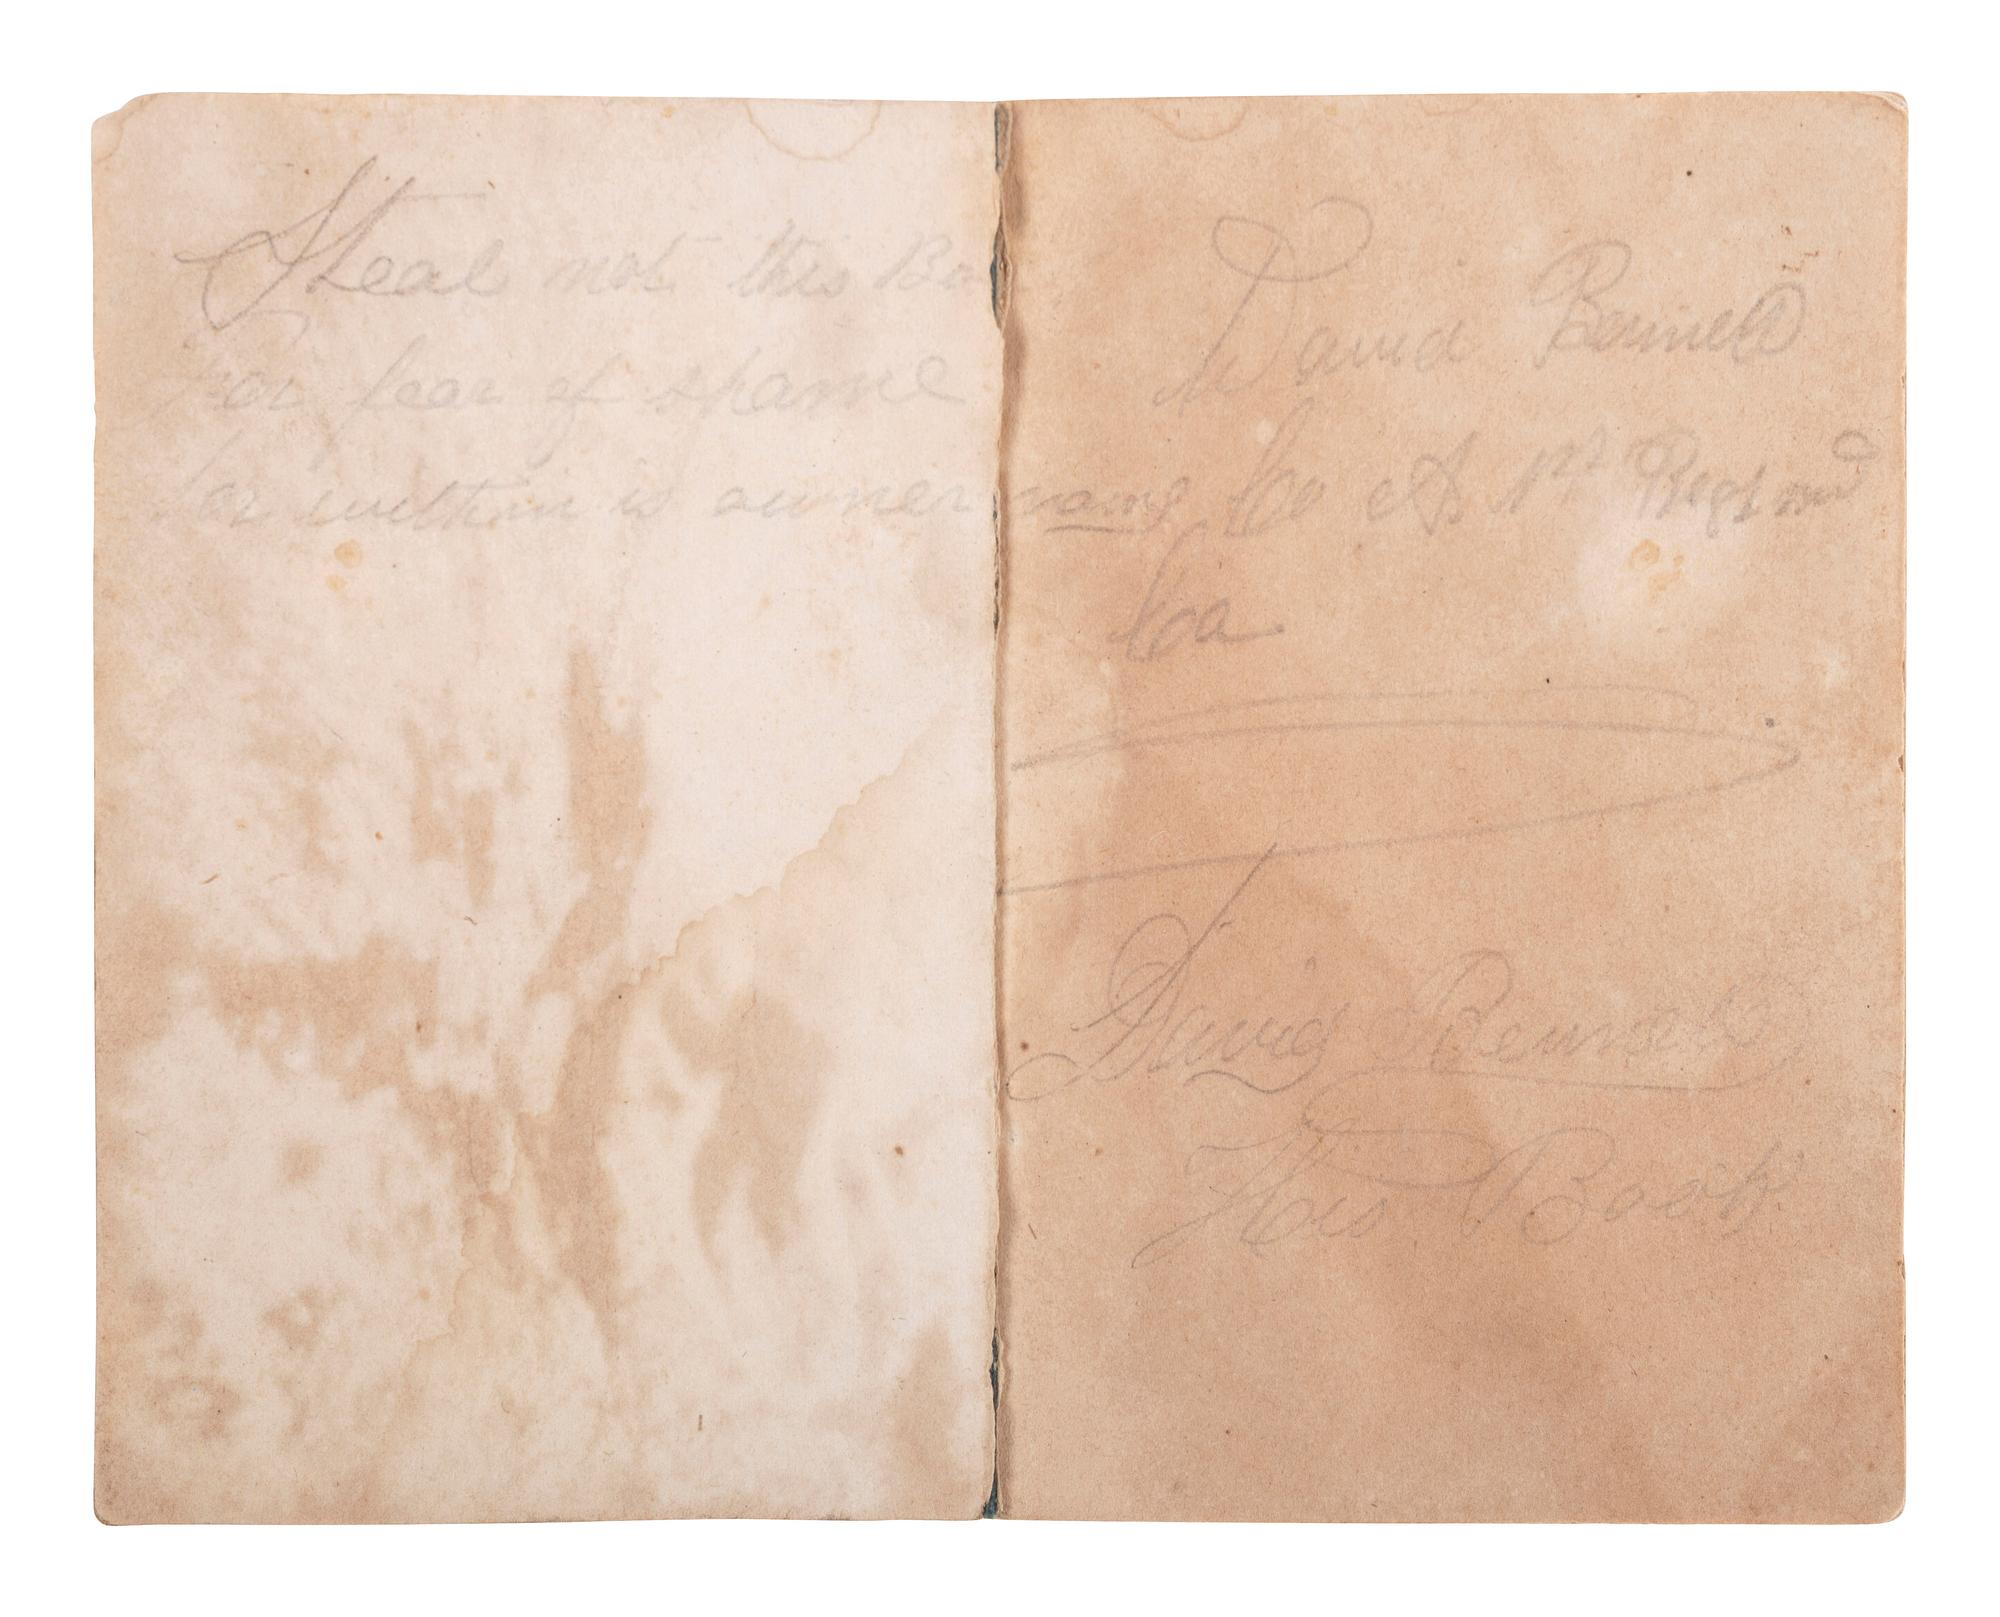 Steal not this Boo
For fear of shame
for within is owner name
David Bennett
Co A 1st Regt md
Ca
David Bennett
His Book